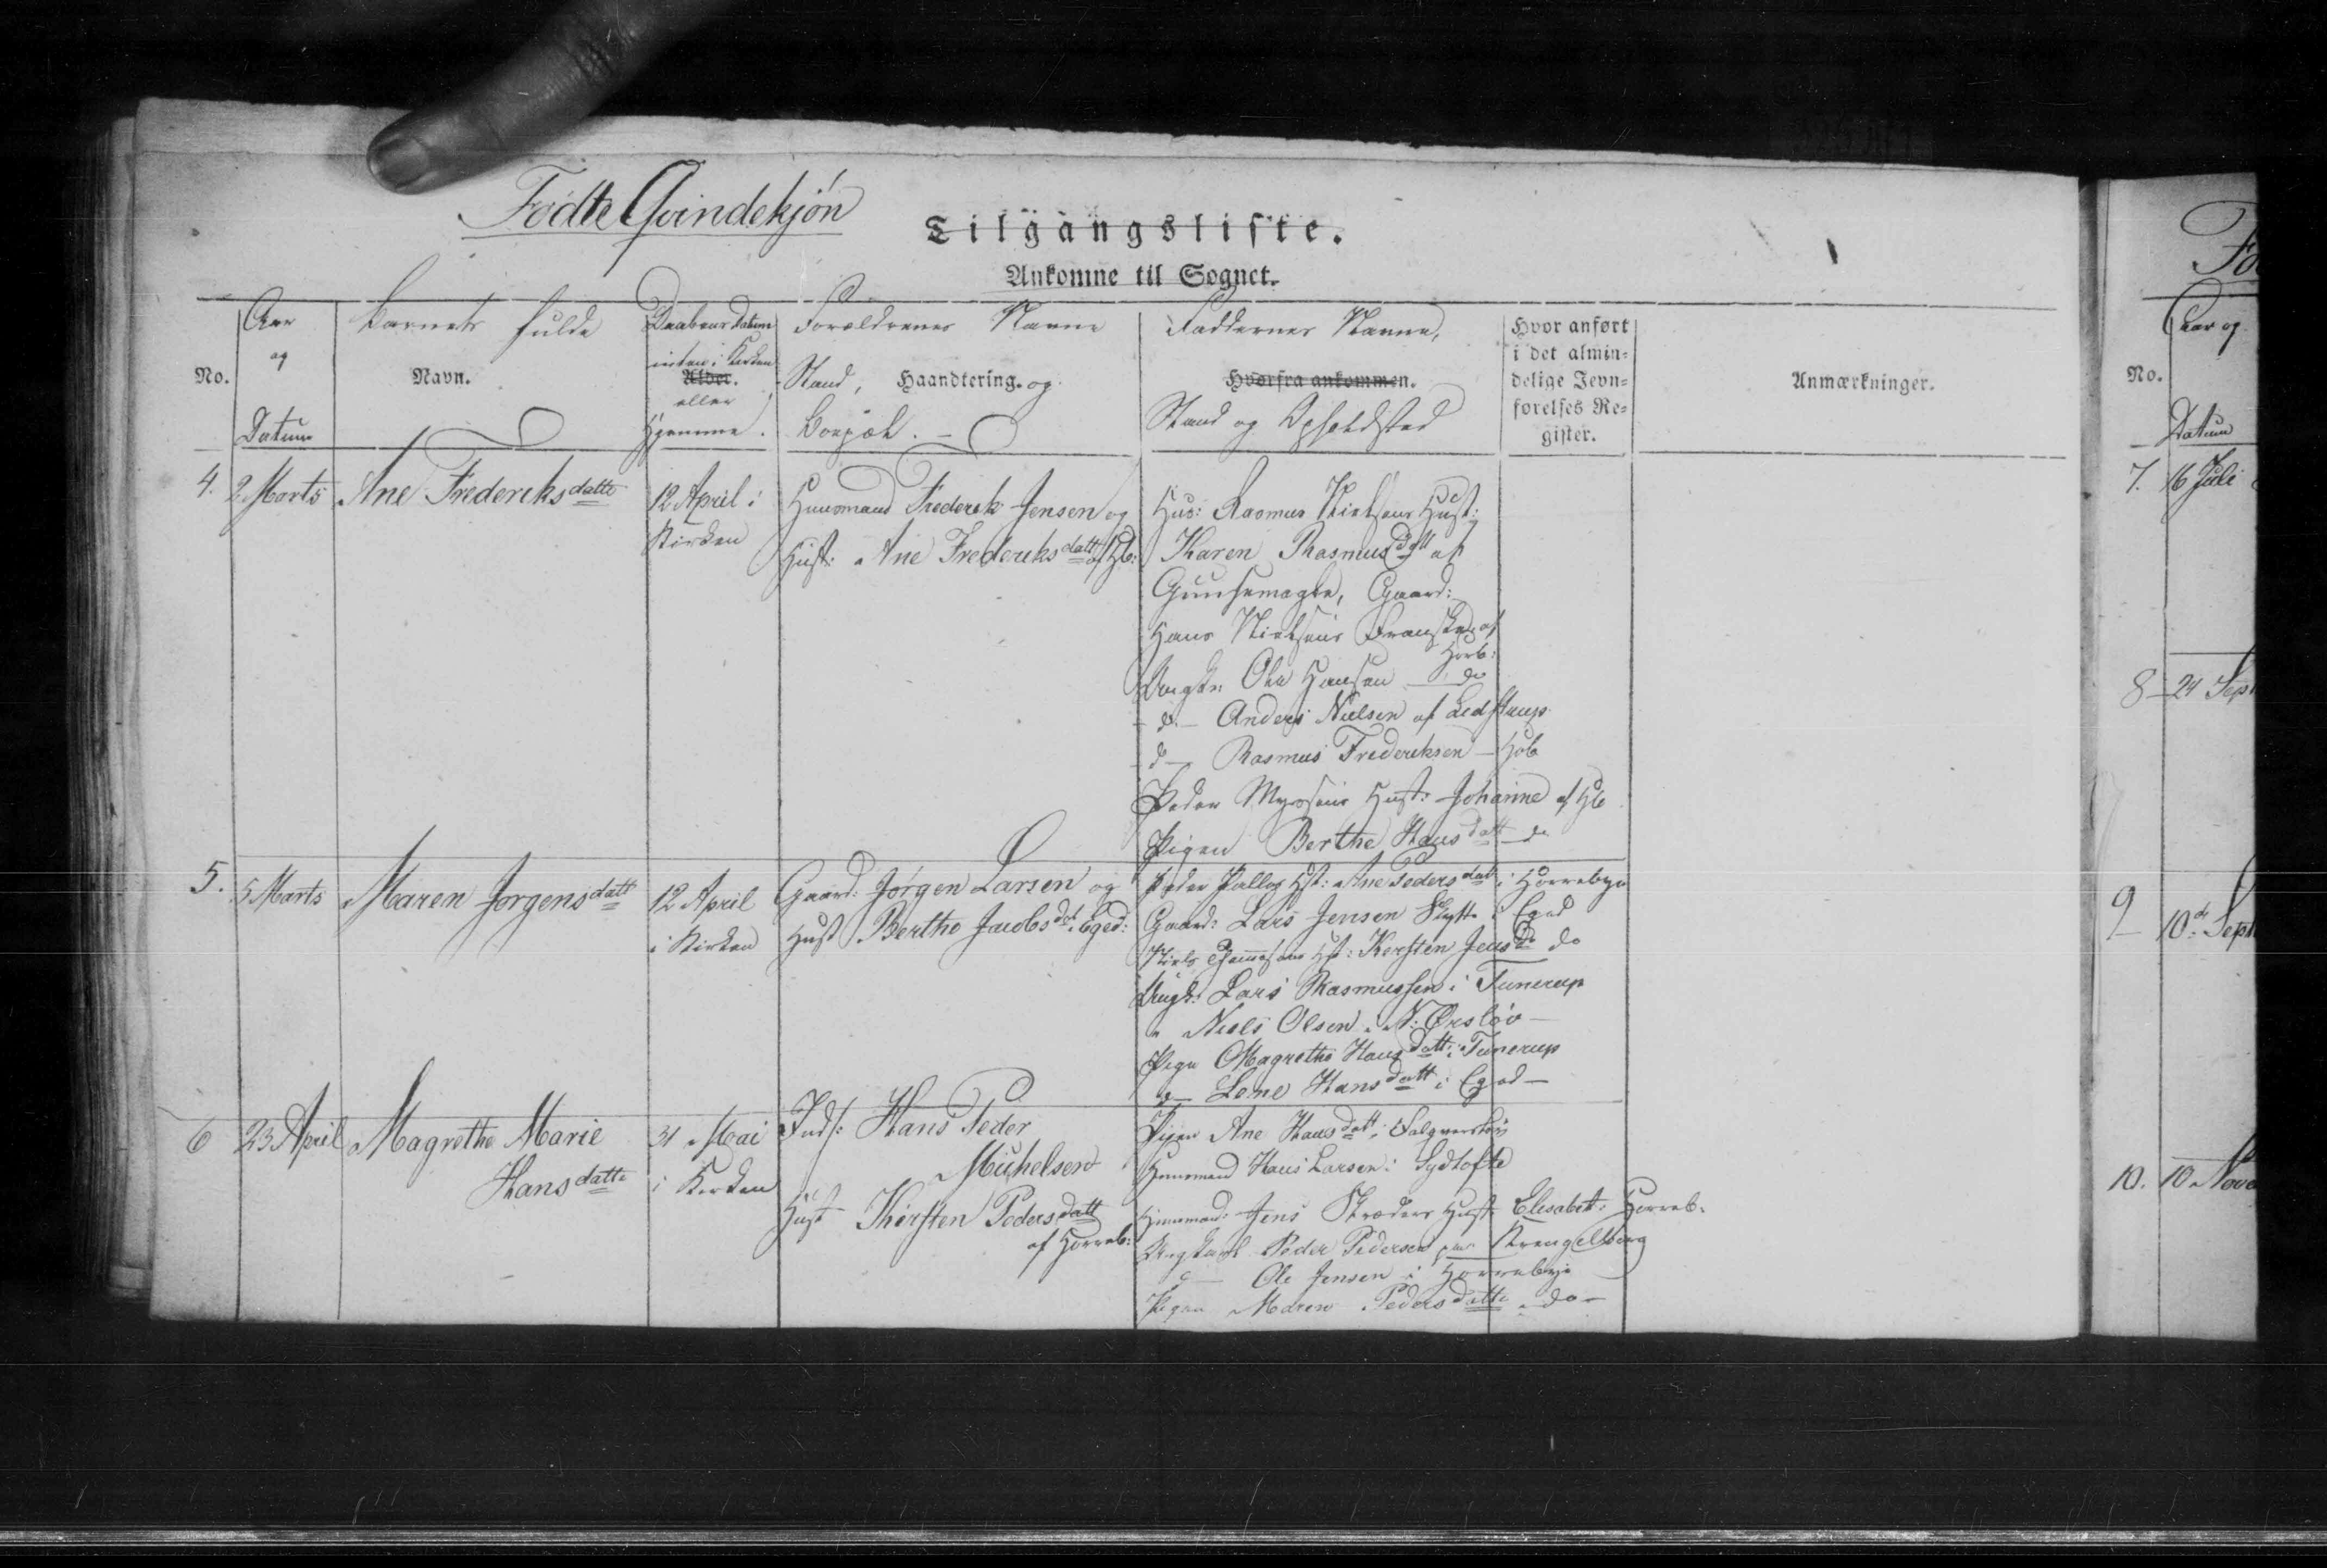 Fødte Qvindekjön
Tilgangsliste.
Ankomne til Sognet.
No.
Aar
og
Datum
Barnets fulde
Navn.
Daabens Datum
enten i Kirken
Alder.
eller
Hjemme.
Forældrenes Navne
Stand, Haandtering. og
Bopæl.
Faddernes Navne,
Hvorfra ankommen.
Stand og Opholdsted
Hvor anført
i det almin-
delige Jevn-
førelses Re-
gister.
Anmærkninger.
4. 2 Marts
Ane Frederiksdatte
12 April i
Kirken
Huusmand Frederik Jensen og
Hust: Ane Frederiksdatt af
Hus: Rasmus Nielsens Hust:
Karen Rasmusdatt af
Gaard:
Hans Nielsens af
Horb:
Ungk: Ole Hansen — do
- d. - Anders Nielsen af
- d - Rasmus Frederiksen -
Peder Hust: Johanne af
Pigen Berthe Hansdatt - do
5. 5 Marts
Maren Jorgensdatt
12 April
i Kirken
Gaard: Jörgen Larsen og
Hust Berthe Jacobsdat i Eged:
Peder Hst: Ane Pedersdatt i Horrebye
Gaard: Lars Jensen i Eged
Niels Hst: Kersten Jensdr do
Ungk: Lars Rasmussen i Tunerup
" Niels Olsen i N: Ørslöv -
Pige Magrethe Hansdatt i Tunerup
d - Lene Hansdatt i Eged -
6 23 April
Magrethe Marie
Hansdatte
31 Mai
i Kirken
Inds: Hans Peder
Michelsen
Hust Khirsten Pedersdatt
af Horreb:
Pigen Ane Hansdatt i
Huusmand Hans Larsen i Sydtofte
Huusmand: Jens Skræders Hust: Elisabet i Horreb.
Ungkarl Peder Pedersen paa Krengelborg
d - Ole Jensen i Horrebye
Pigen Maren Pedersdatte - do -
Aar og
No.
Datum
7. 16 Juli
8 - 24 Sept
9 10de Sept
10. 10 Nove